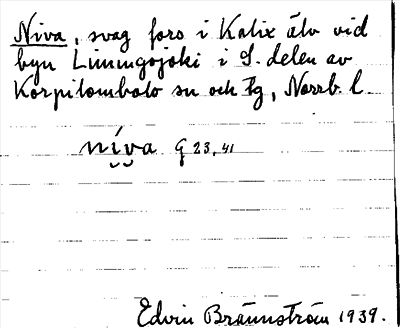 Niva, svag fors i Kalix älv vid
byn Limingojoki i S. delen av
Korpilombolo sn och tg, Norrb. l.
níva G 23, 41
Edvin Brännström 1939.